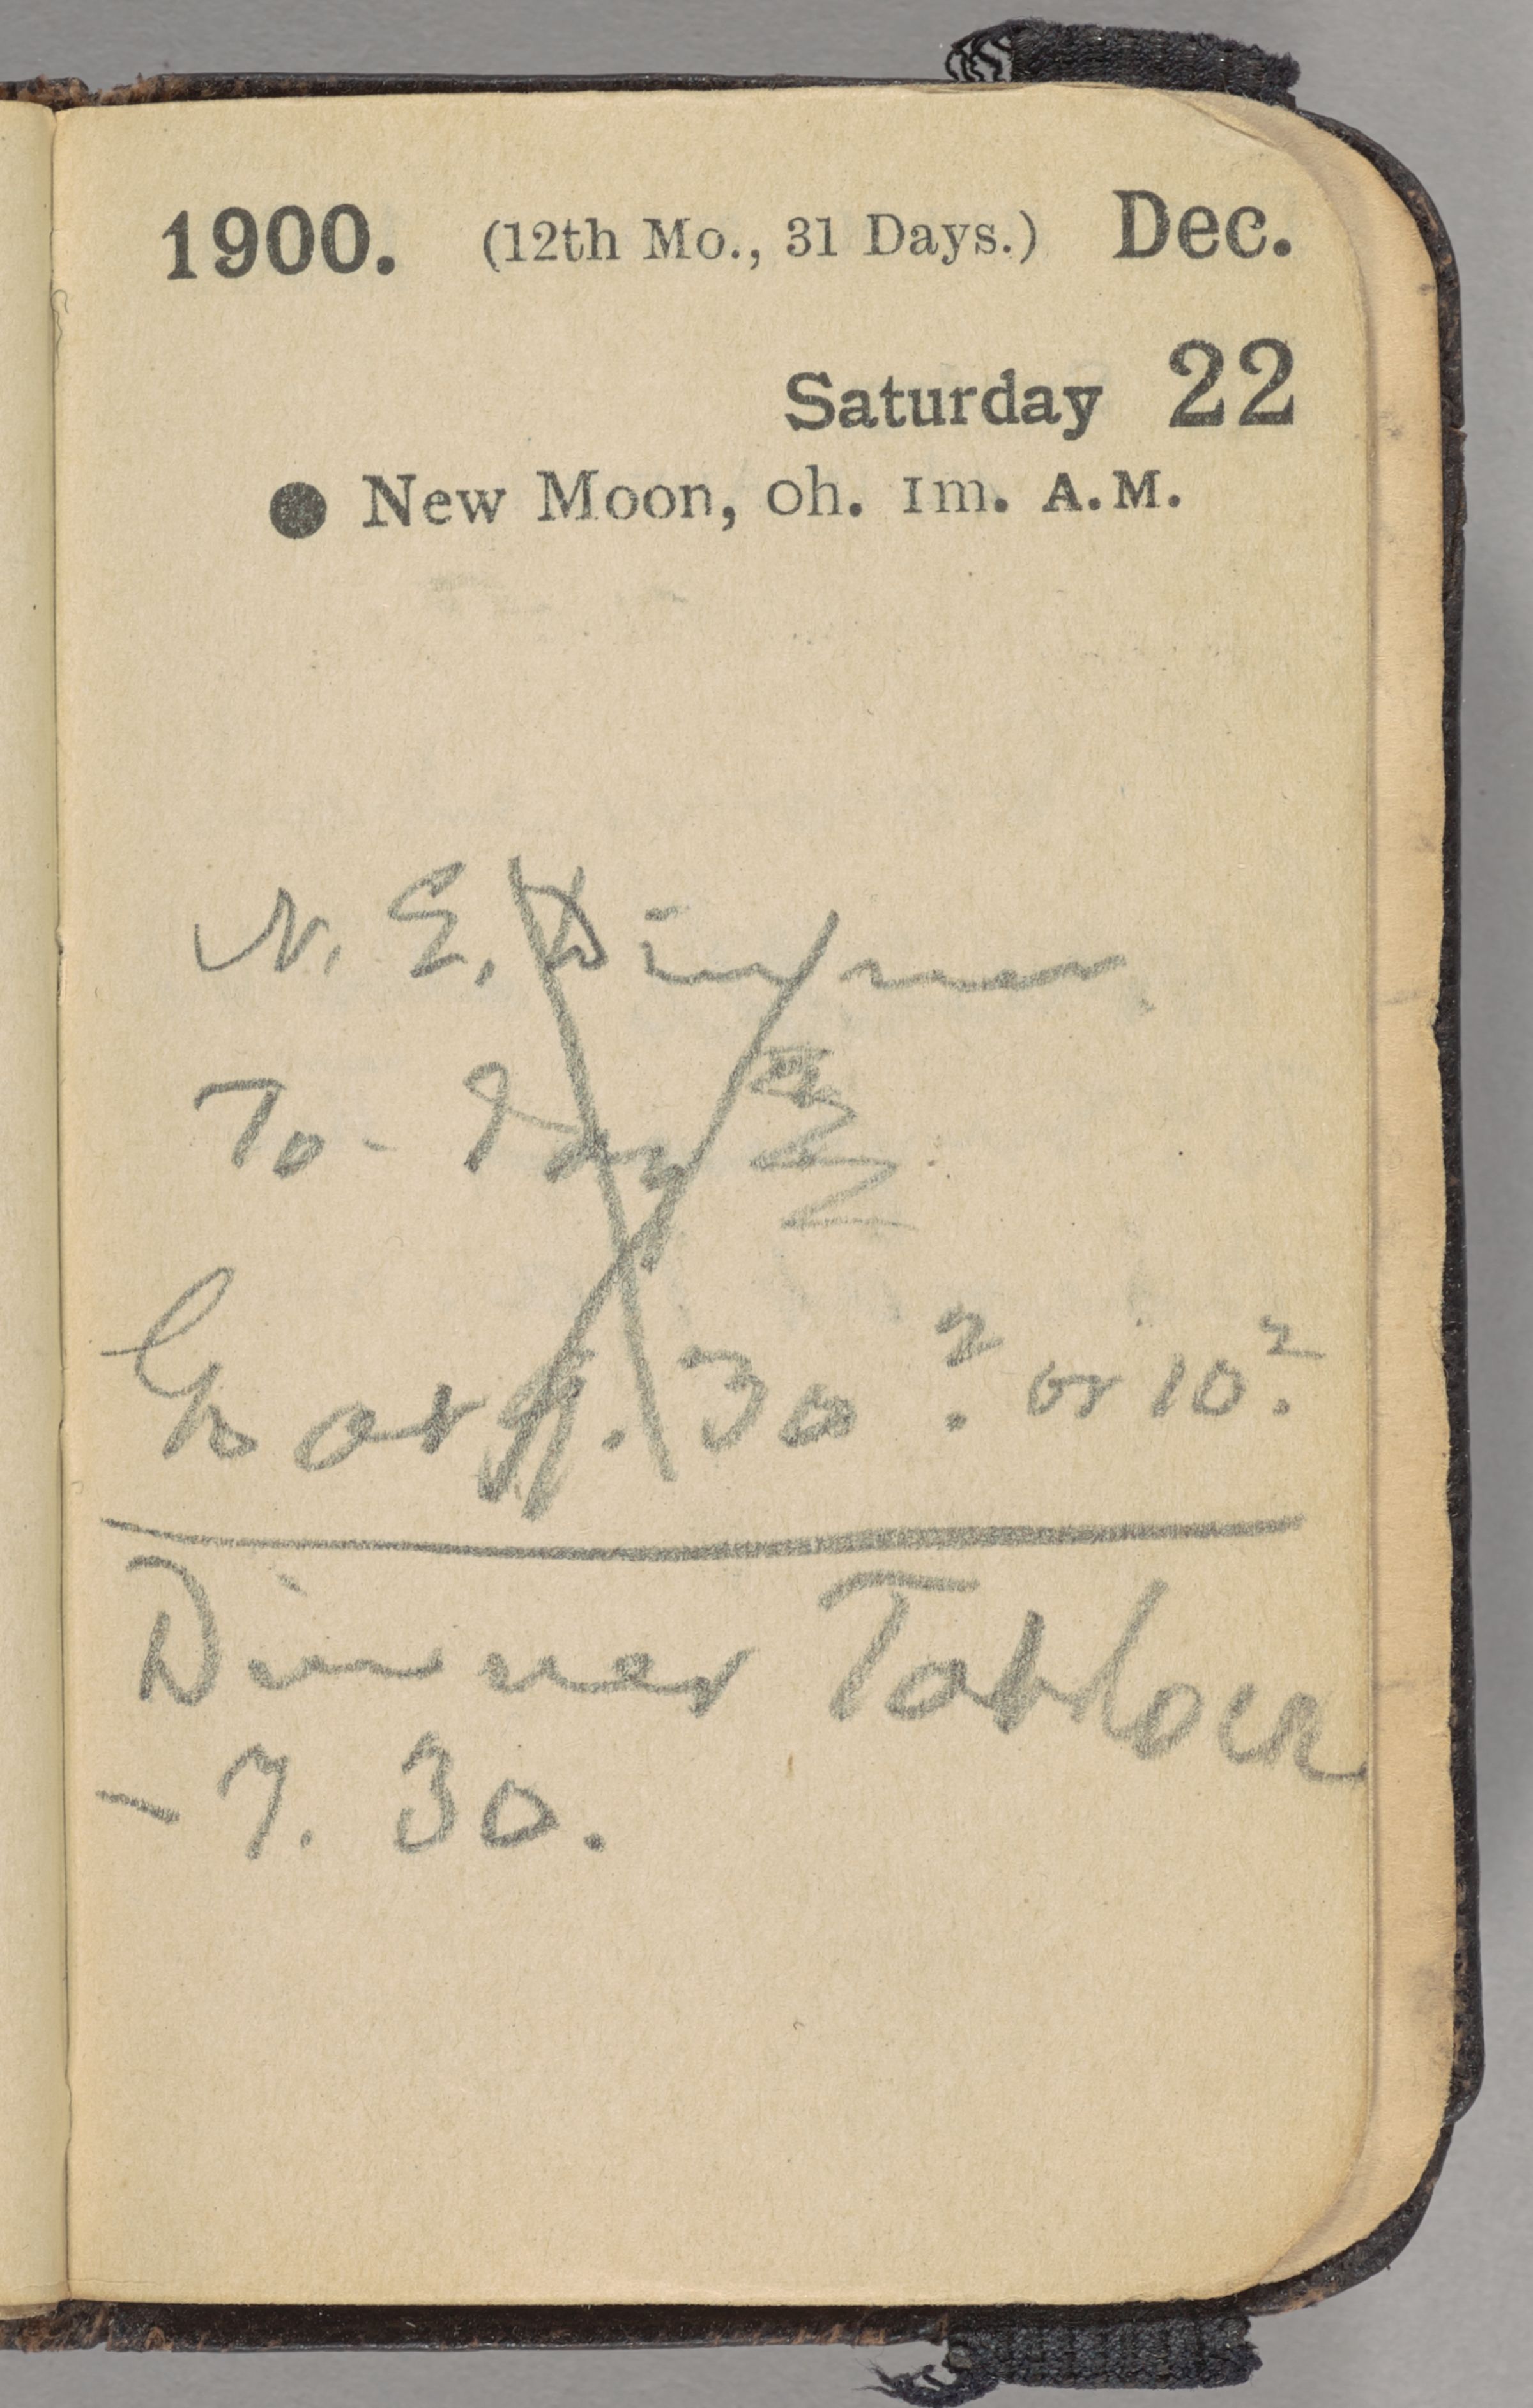 1900. (12th Mo., 31 Days.) Dec.
Saturday 22
● New Moon, 0h. 1m. A.M.
N. E. Dinner
To-Day
Go at 9.30? or 10?
Dinner
- 7. 30.